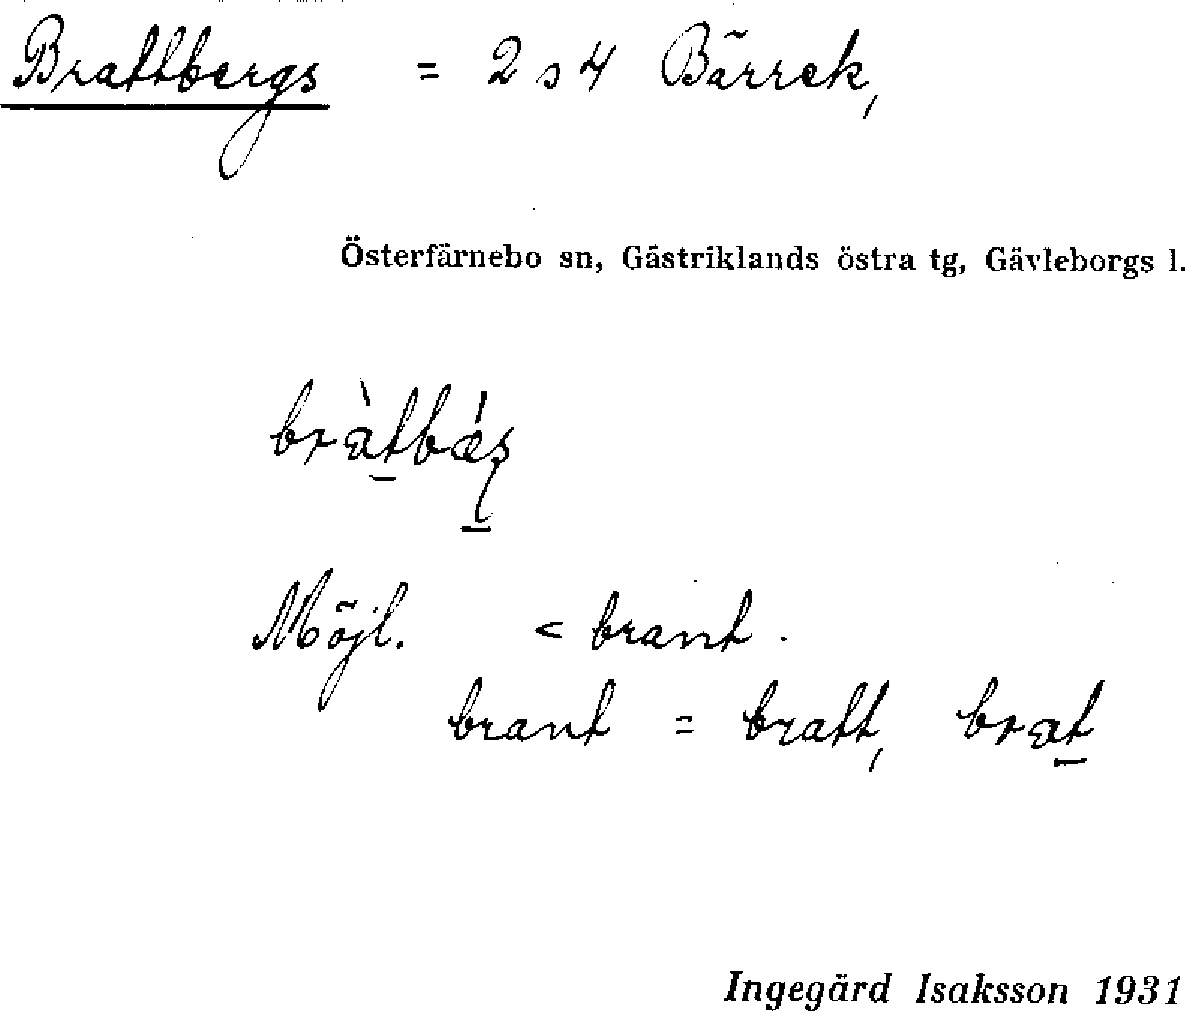 Brattbergs = 2 s 4 Bärrek,
Österfärnebo sn, Gästriklands östra tg, Gävleborgs l.
bràtbǽș
Möjl. < brant.
brant = bratt, brat
Ingegärd Isaksson 1931